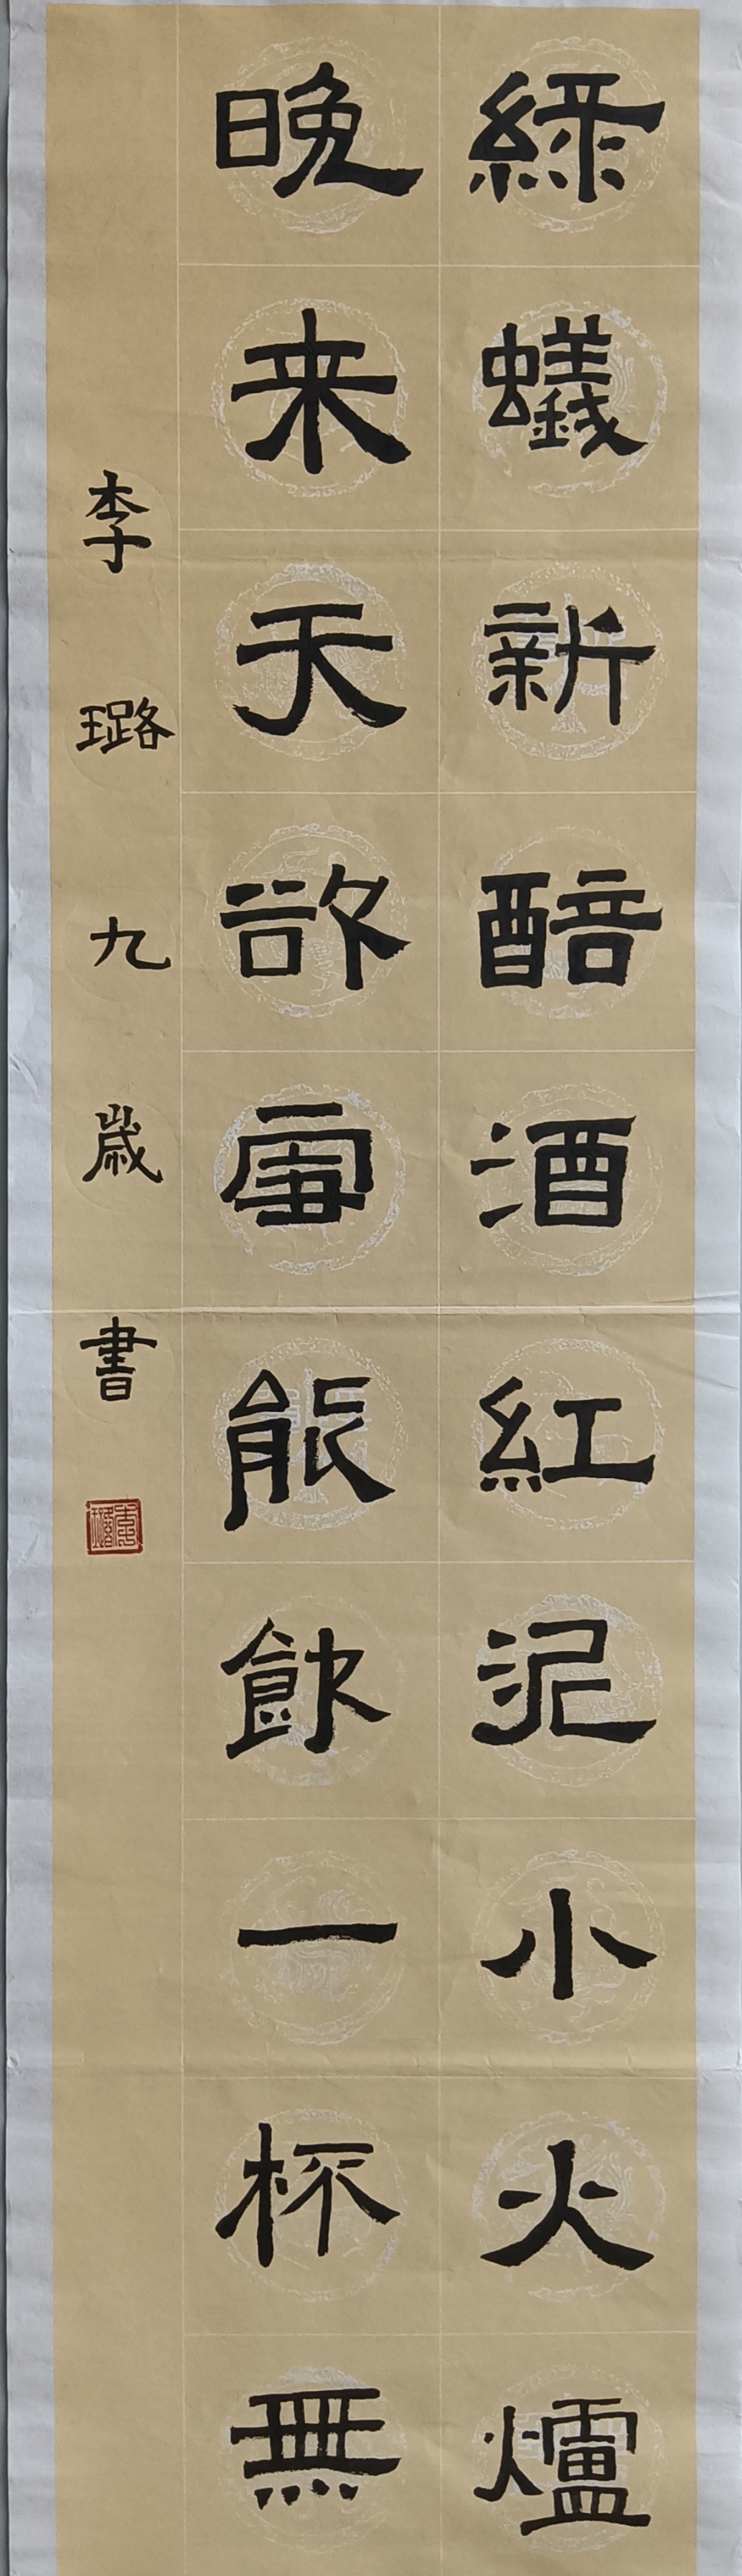 綠蟻新醅酒紅泥小火爐
晚来天欲雪能飲一杯無
李璐九歲書